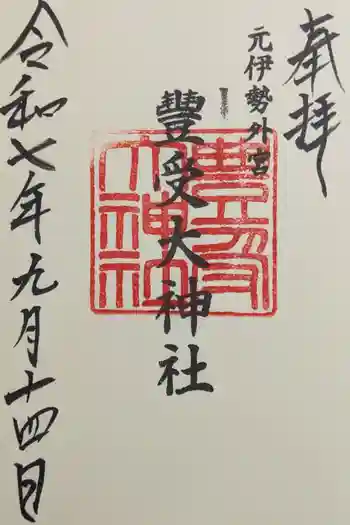 奉拝
元伊勢外宮
豊受大神社
豐受大神社
令和七年九月十四日